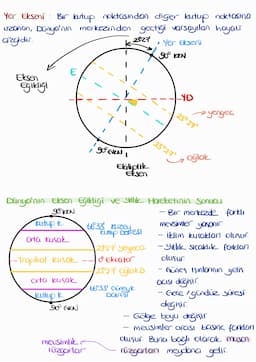 Yer Ekseni : Bir kutup noktasından diğer kutup noktasına
uzanan, Dünya'nın merkezinden geçtiği varsayılan hayali
çizgidir.
23°27'
Yer Ekseni
90° KKN
Eksen
Eğikliği
E
YD
23°27'
yengeç
23°27'
oğlak
90° GKN
Ekliptik
Eksen
Dünya'nın Eksen Eğikliği ve Yıllık Hareketinin Sonucu
90° KKN
kutup K
66°33' kuzey
kutup dairesi
orta kuşak
23°27' yengeç
Tropikal kuşak
0° ekvator
23°27' oğlak
orta kuşak
66°33' güney
k. dairesi
kutup K
90° GKN
- Bir merkezde farklı
mevsimler yaşanır
- iklim kuşakları olunur
- Yıllık sıcaklık farkları
olunur
- Güneş ışınlarının gelm
açısı değişir
- Gece / gündüz süresi
değişir
- Gölge boyu değişir
- mevsimler arası basınç farkları
olunur. Buna bağlı olarak muson
rüzgarları meydana gelir.
mevsimlik
rüzgarlar